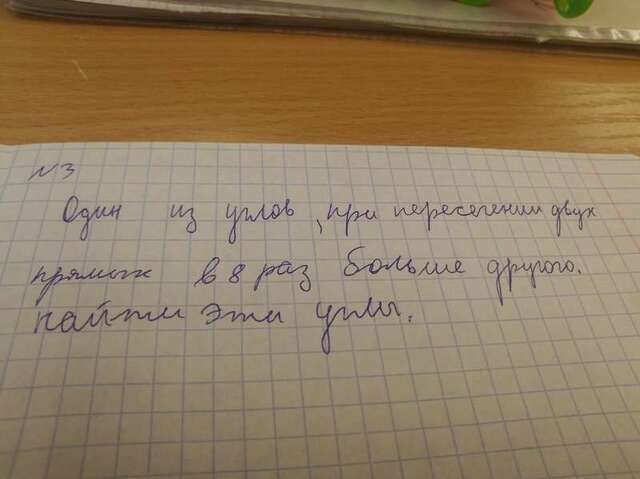 N3
Один из углов, при пересечении двух
прямых в 8 раз больше другого.
найти эти углы.